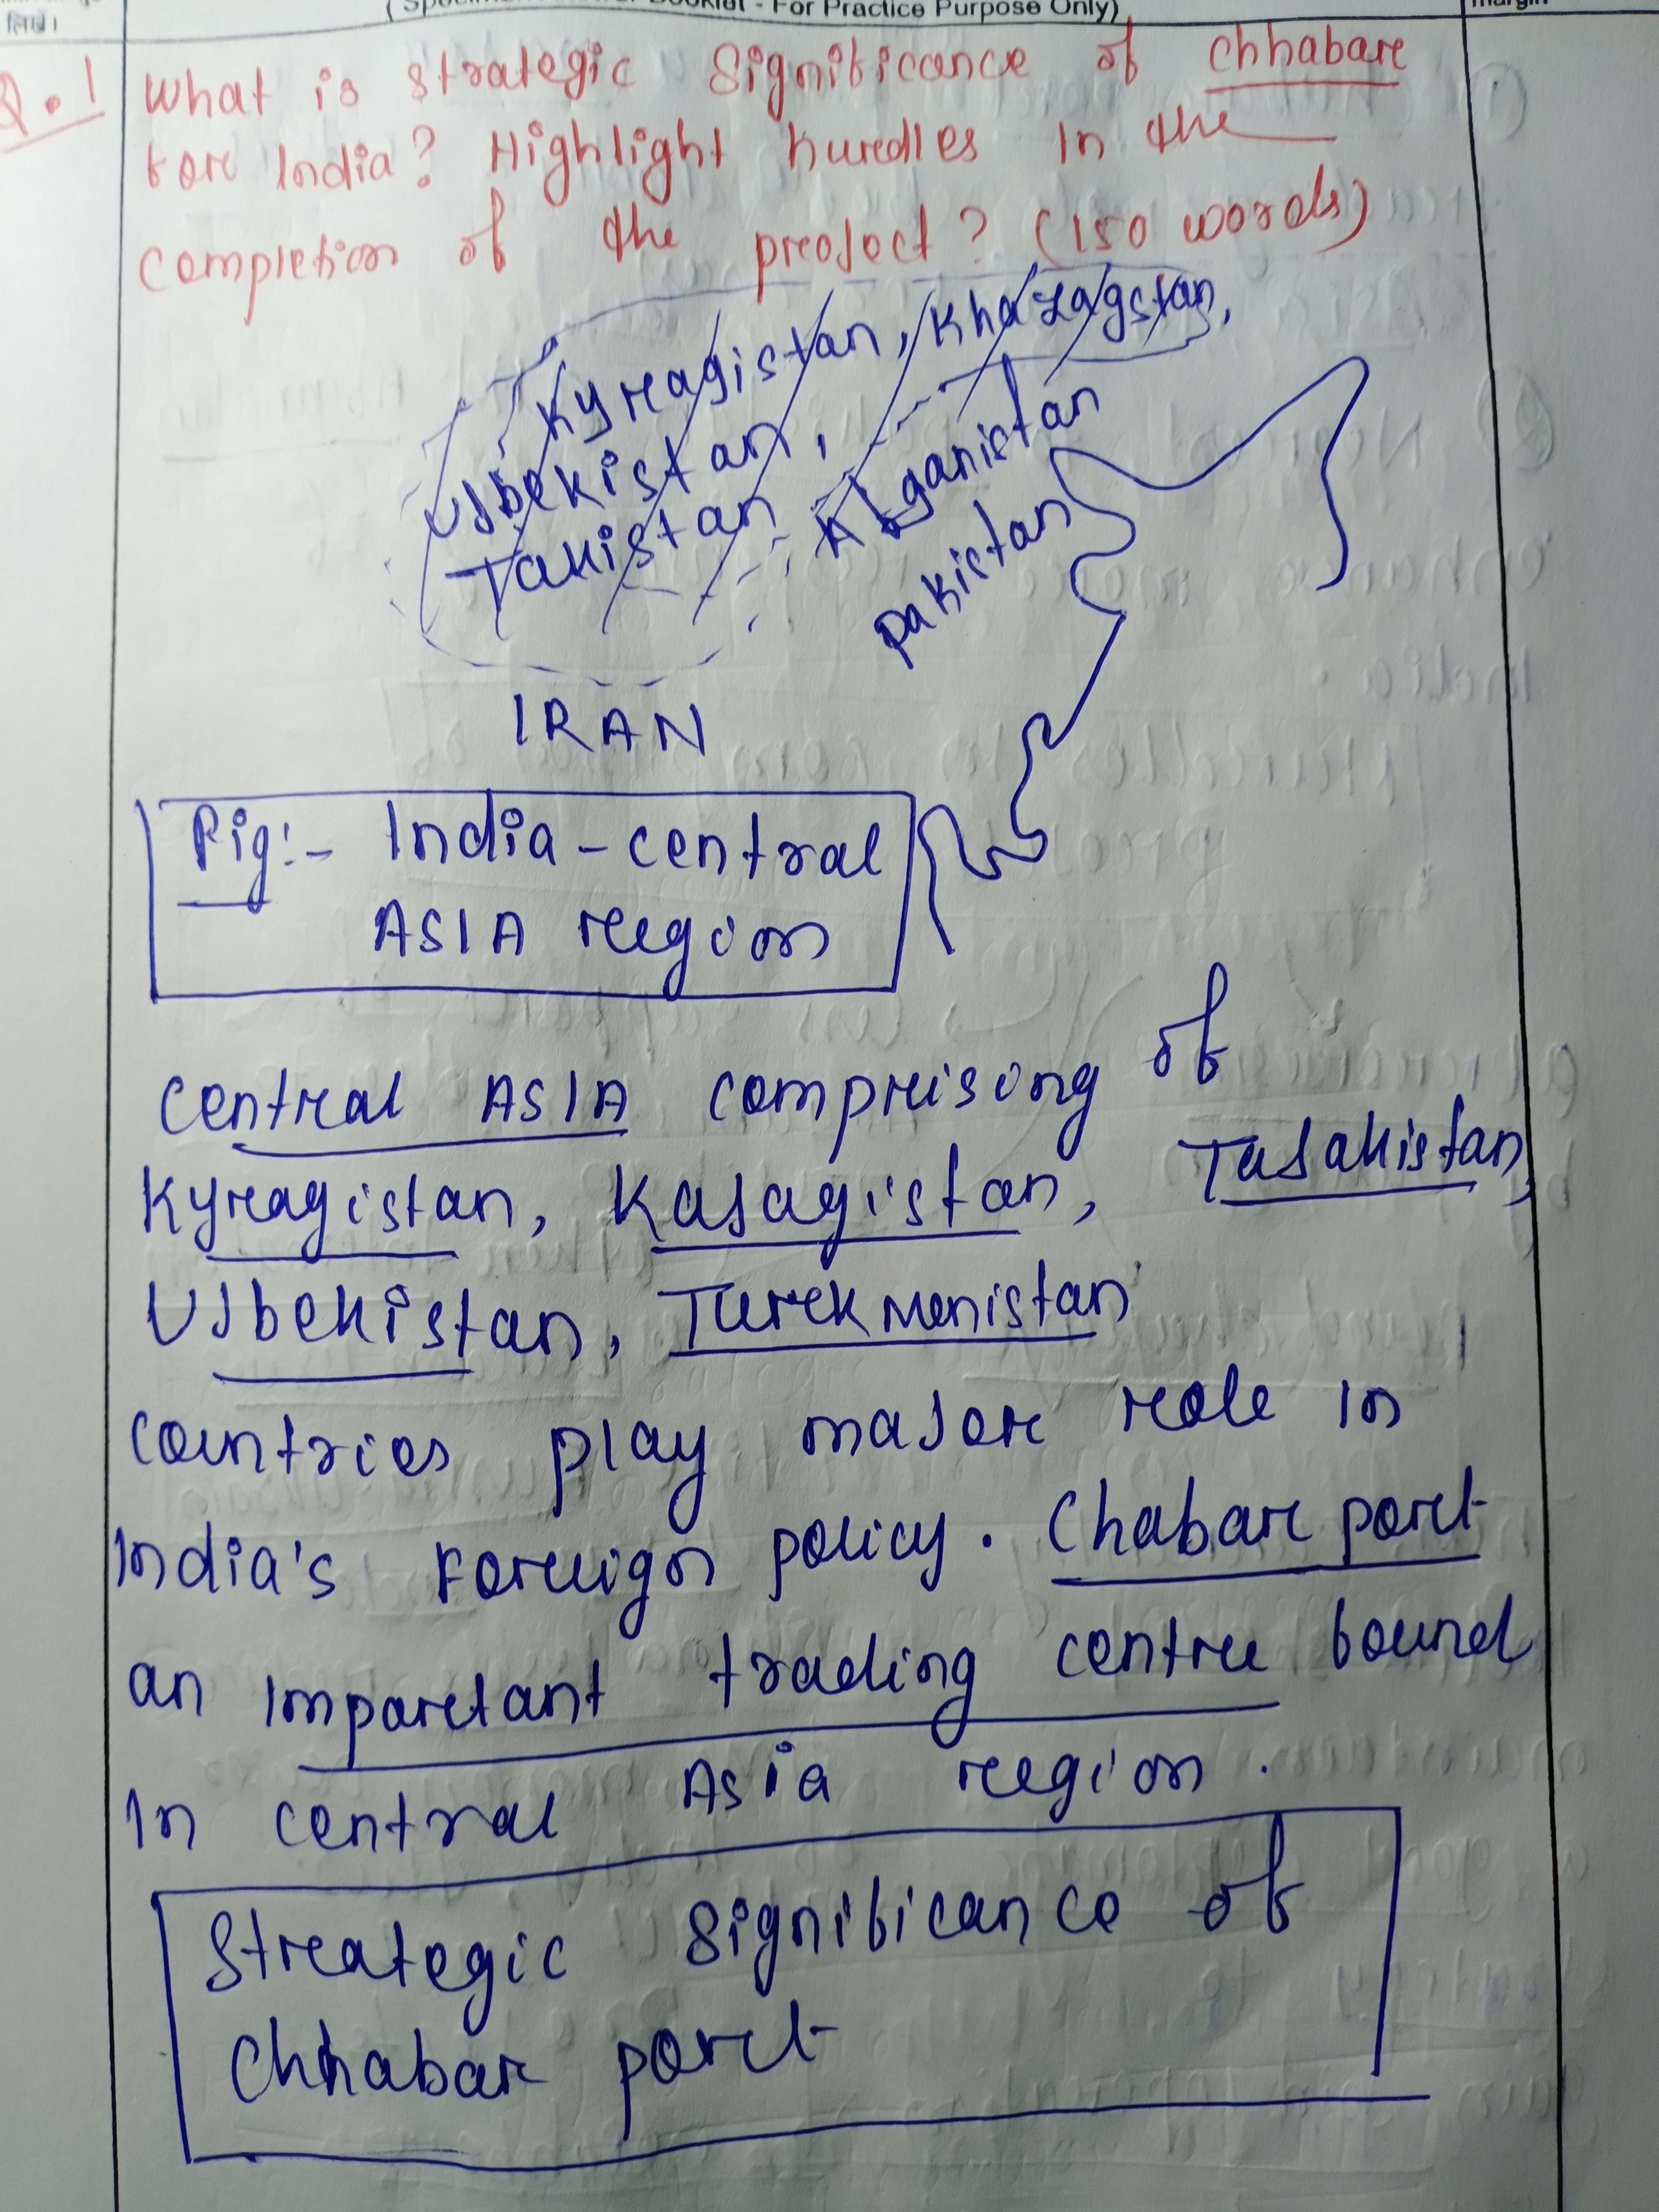 लिखें।
(Specimen Answer Booklet - For Practice Purpose Only)
margin
Q.1 What is strategic Significance of chhabar
for India? Highlight hurdles in the
completion of the project? (150 words)
Kyragistan, Khazagstan,
Uzbekistan,
Takistan
Afganistan
pakistan
IRAN
Fig:- India-central
ASIA region
central ASIA comprising of
Kyragistan, Kajagistan, Tajakistan,
Ujbekistan, Turkmenistan
countries play major role in
India's Foreign policy. Chabar port
an important trading centre bound
in central Asia region.
Strategic Significance of
Chhabar port